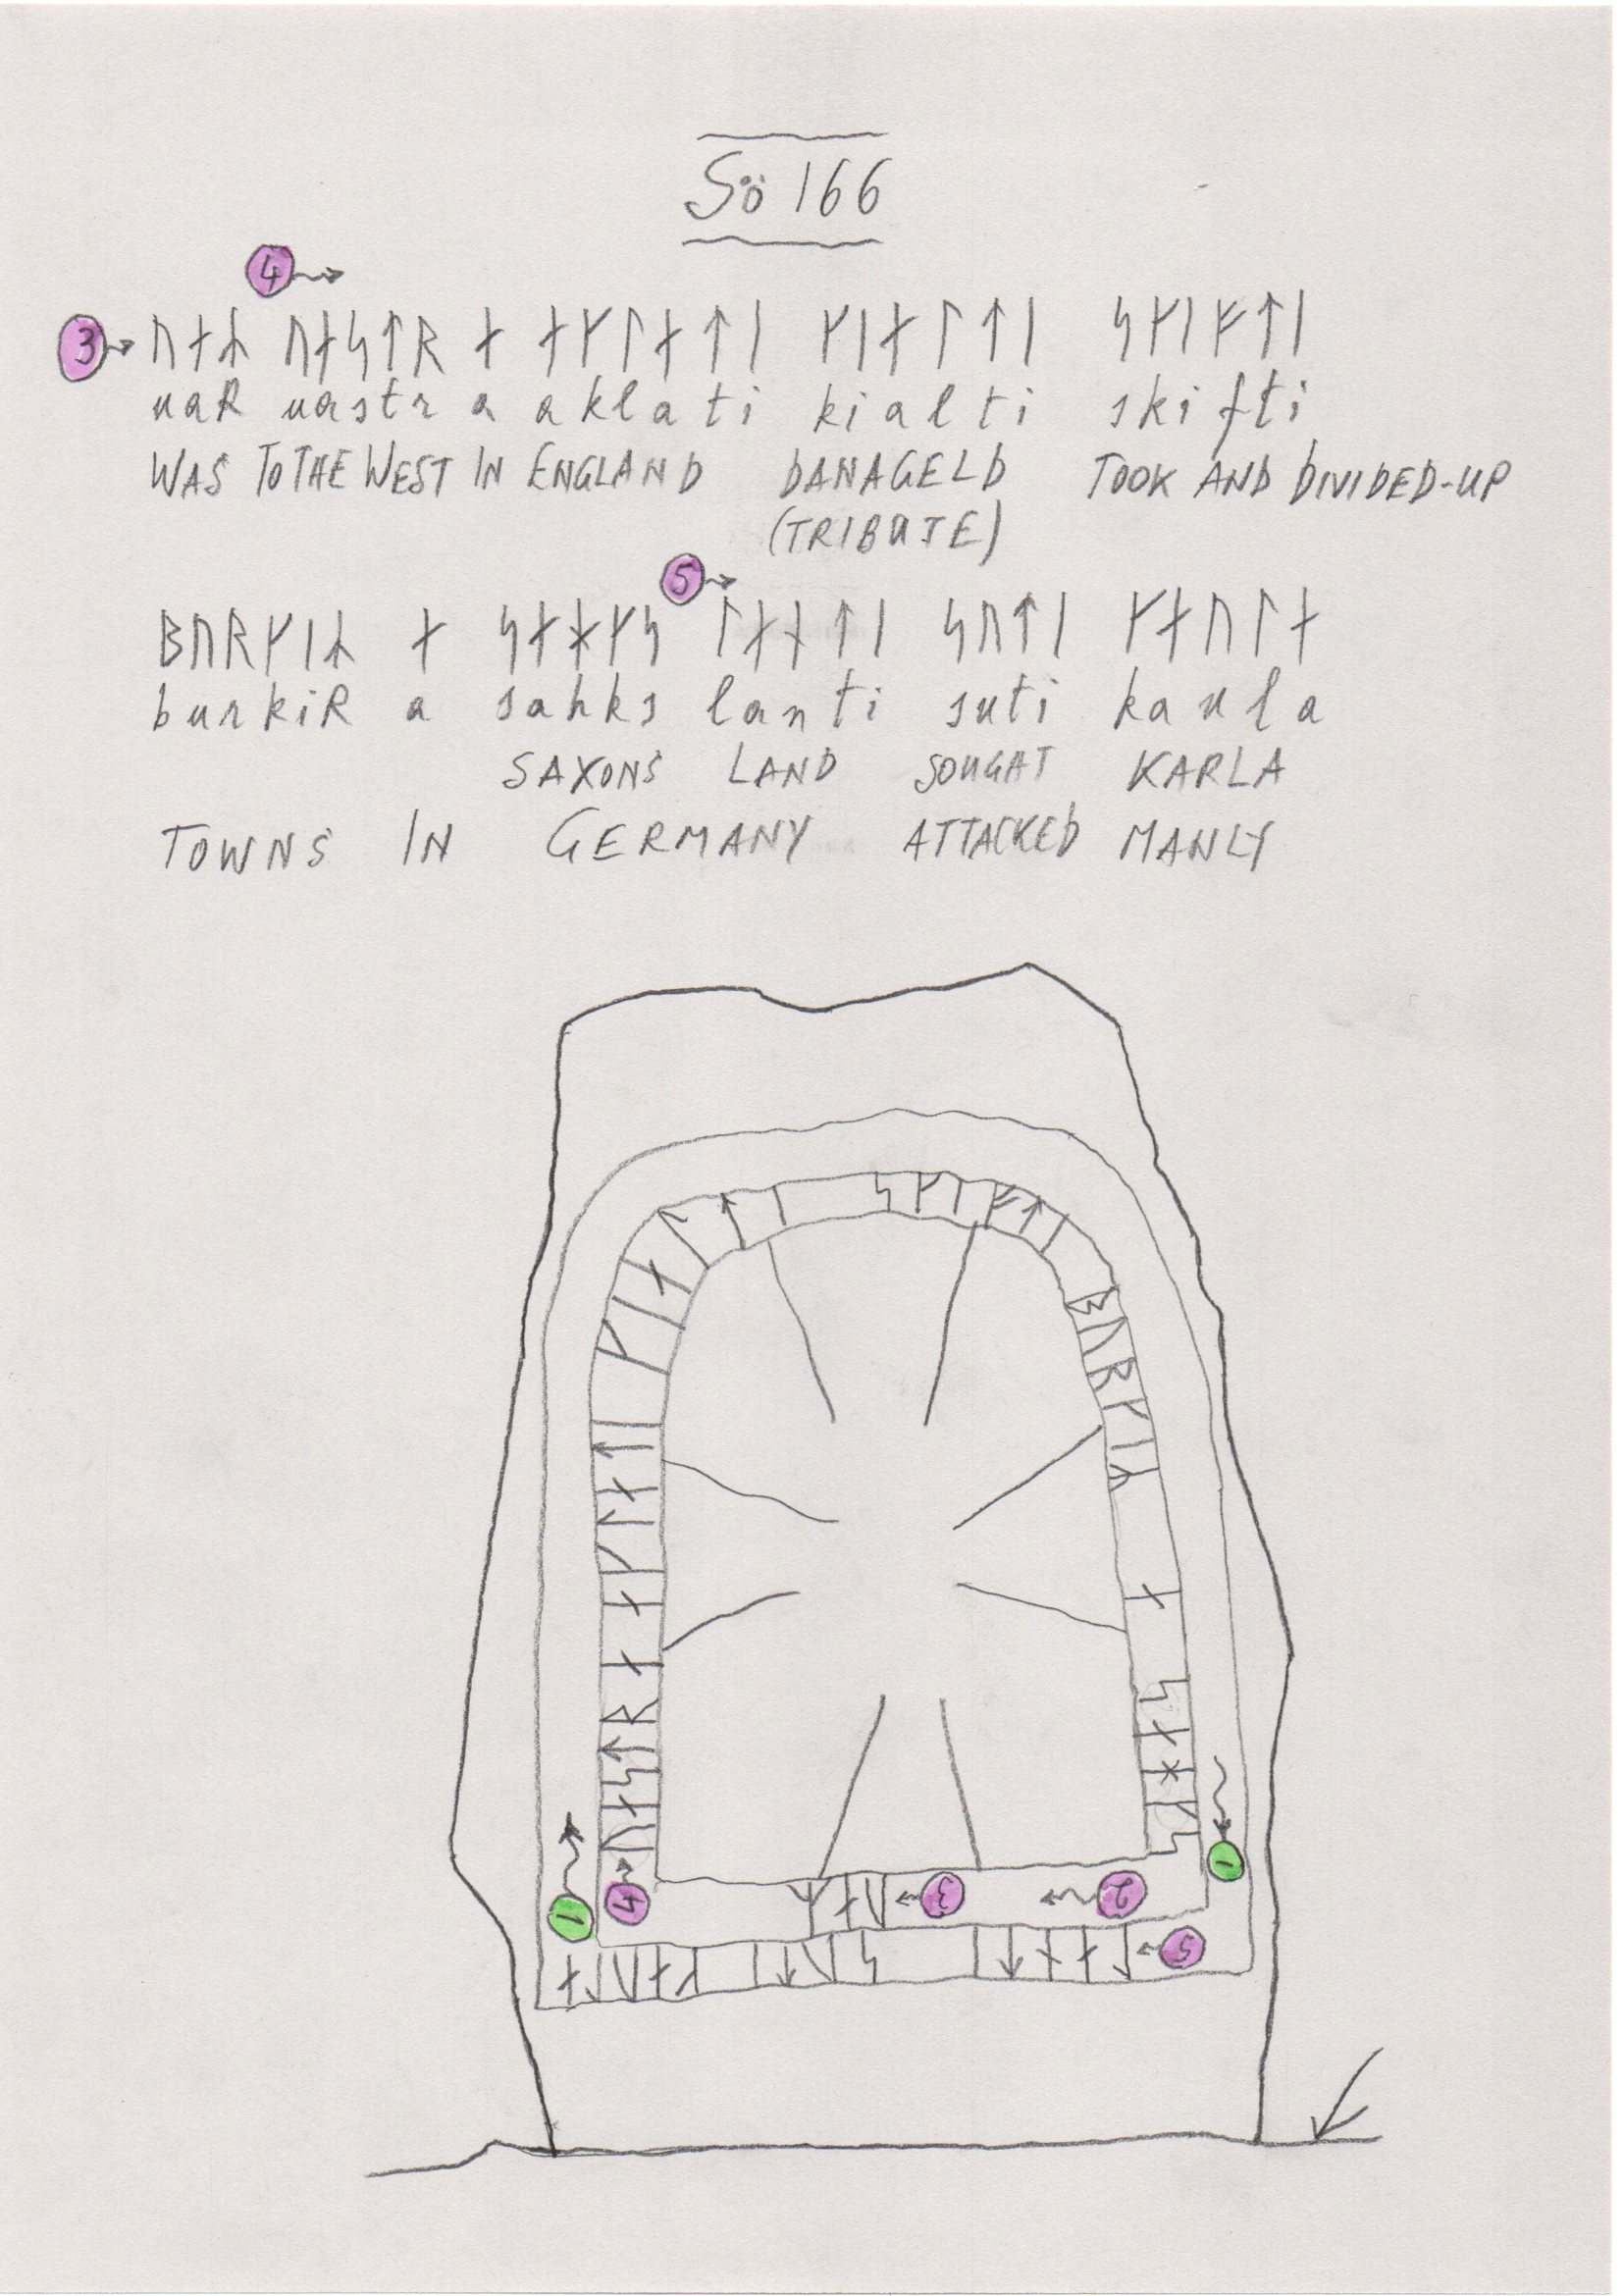 Sö 166
4
3 ᚢᛅᛦ ᚢᛅᛋᛏᚱ ᛅ ᛅᚴᛚᛅᛏᛁ ᚴᛁᛅᛚᛏᛁ ᛋᚴᛁᚠᛏᛁ
uaR uastr a aklati kialti skifti
WAS TO THE WEST IN ENGLAND DANAGELD TOOK AND DIVIDED-UP
(TRIBUTE)
5
ᛒᚢᚱᚴᛁᛦ ᛅ ᛋᛅᚼᚴᛋ ᛚᛅᚾᛏᛁ ᛋᚢᛏᛁ ᚴᛅᚢᛚᛅ
burkiR a sahks lanti suti kaula
SAXONS LAND SOUGHT KARLA
TOWNS IN GERMANY ATTACKED MANLY
1
1
2
3 ᚢᛅᛦ
4 ᚢᛅᛋᛏᚱ ᛅ ᛅᚴᛚᛅᛏᛁ ᚴᛁᛅᛚᛏᛁ ᛋᚴᛁᚠᛏᛁ ᛒᚢᚱᚴᛁᛦ ᛅ ᛋᛅᚼᚴᛋ
5 ᛚᛅᚾᛏᛁ ᛋᚢᛏᛁ ᚴᛅᚢᛚᛅ